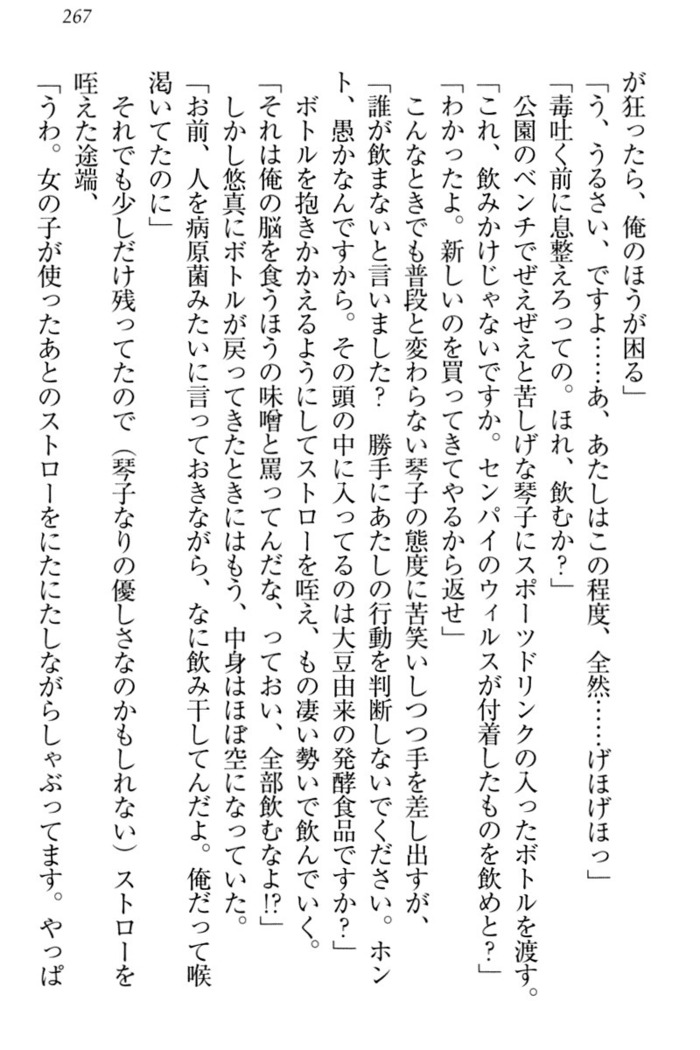 267
が狂ったら、俺のほうが困る」
「う、うるさい、ですよ……あ、あたしはこの程度、全然……げほげほっ」
「毒吐く前に息整えろっての。ほれ、飲むか？」
　公園のベンチでぜえぜえと苦しげな琴子にスポーツドリンクの入ったボトルを渡す。
「これ、飲みかけじゃないですか。センパイのウィルスが付着したものを飲めと？」
「わかったよ。新しいのを買ってきてやるから返せ」
　こんなときでも普段と変わらない琴子の態度に苦笑いしつつ手を差し出すが、
「誰が飲まないと言いました？　勝手にあたしの行動を判断しないでください。ホン
ト、愚かなんですから。その頭の中に入ってるのは大豆由来の発酵食品ですか？」
　ボトルを抱きかかえるようにしてストローを咥え、もの凄い勢いで飲んでいく。
「それは俺の脳を食うほうの味噌と罵ってんだな、っておい、全部飲むなよ!?」
　しかし悠真にボトルが戻ってきたときにはもう、中身はほぼ空になっていた。
「お前、人を病原菌みたいに言っておきながら、なに飲み干してんだよ。俺だって喉
渇いてたのに」
　それでも少しだけ残ってたので（琴子なりの優しさなのかもしれない）ストローを
咥えた途端、
「うわ。女の子が使ったあとのストローをにたにたしながらしゃぶってます。やっぱ